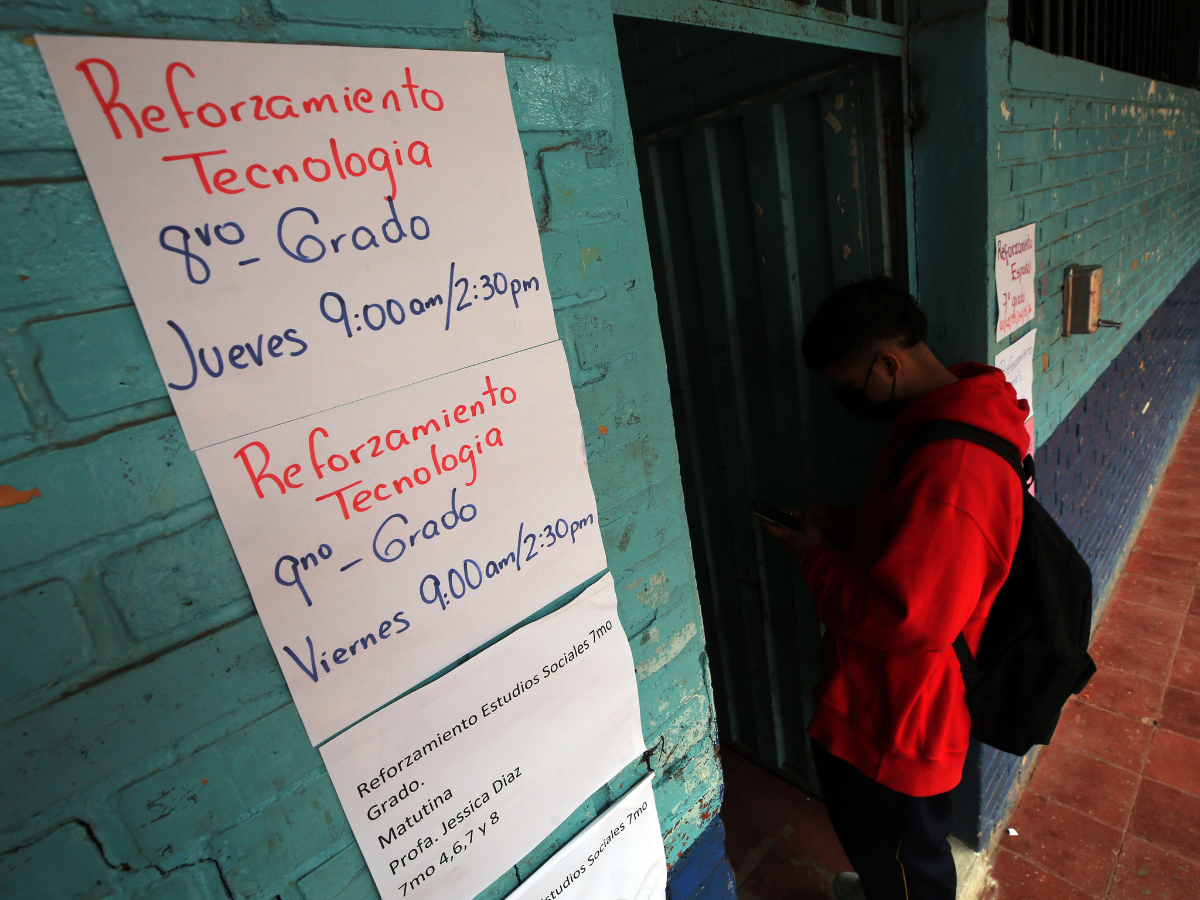 Reforzamiento
Tecnologia
8vo- Grado
Jueves 9:00am/2:30pm
Reforzamiento
Tecnologia
9no- Grado
Viernes 9:00am/2:30pm
Reforzamiento Estudios Sociales 7mo
Grado.
Matutina
Profa. Jessica Diaz
7mo 4,6,7 y 8
Estudios Sociales 7mo
Reforzamiento
Español
7º grado